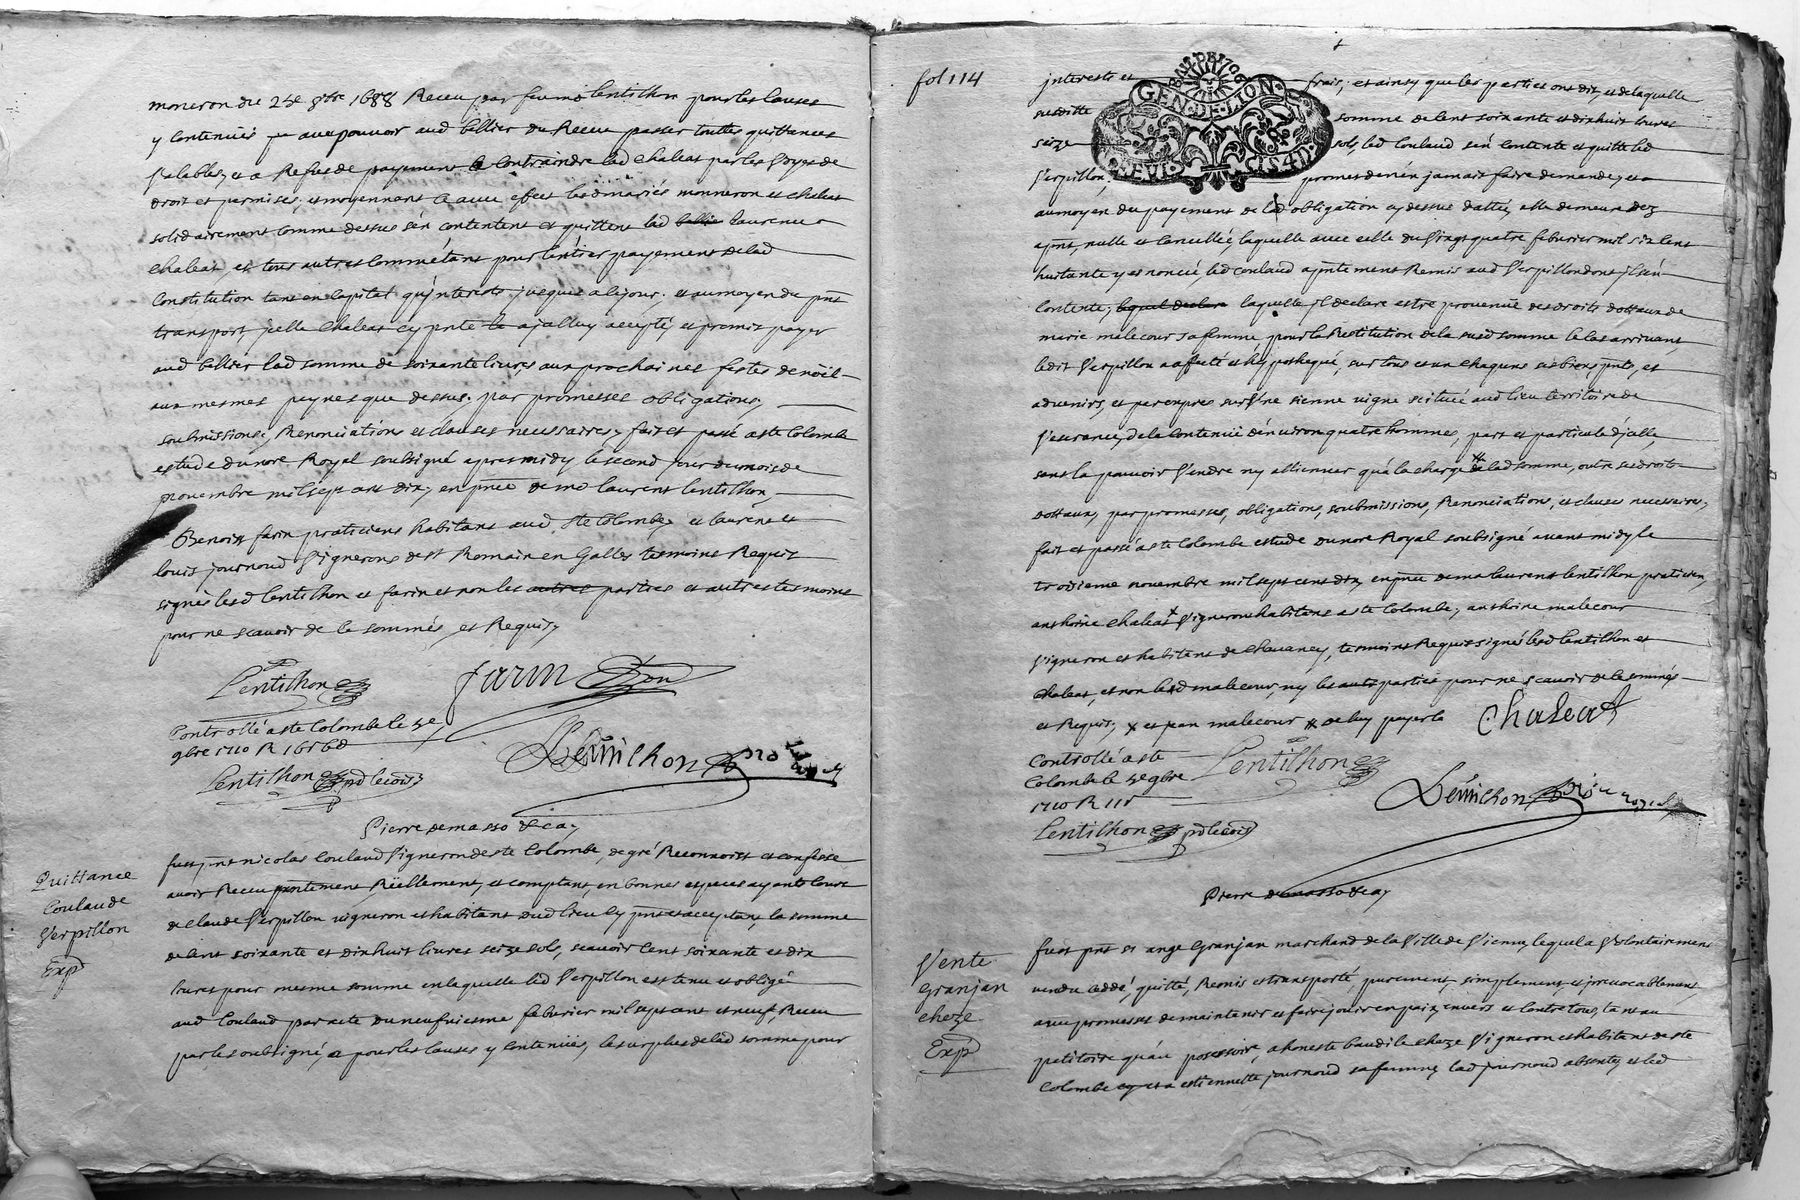 moneron du 24e 8bre 1688 Receu par feu me lentilhon pour les causes
y contenües avec pouvoir aud bellier du Receu passer touttes quittances
Valables, et a Refus de payement contraindre led chaleat par les Voyes de
droit et permises, et moyennant ce avec effect lesd mariés monneron et chaleat
solidairement comme dessus s'en contentent et quittent led laurence
chaleat et tous autres pour l'entier payement de lad
Constitution tant en capital qu'interests jusques a ce jour. et au moyen du pnt
transport, icelle Chaleat cy pnte accepté, et promis payer
aud bellier lad somme de soixante livres aux prochaines festes de noël
aux mesmes peynes que dessus. par promesses obligations,
soubmissions, Renonciations et clauses necessaires, fait et passé a ste Colombe
estude du nore Royal soubsigné apres midy le second jour du mois de
novembre mil sept cens dix, en pnce de me laurent lentilhon,
Benoist farin praticiens habitans aud ste Colombe, et laurens et
louis journoud Vignerons de st Romain en Galles tesmoins Requis
signés lesd lentilhon et farin et non les autres parties et autres tesmoins
pour ne scavoir de ce sommés et Requis,
Lentilhon farin
Controllé a ste Colombe le 5e
9bre 1710 R
Lentilhon
Lentilhon
Pierre demasso &ca,
Quittance
Coulaud e
Verpillon
Exp
fust pnt nicolas Coulaud Vigneron de ste Colombe, de gré Reconnoist et confesse
avoir Receu pntement Réellement, et comptant en bonnes especes ayants cours
de claude Verpillon vigneron et habitant dud lieu cy pnt et acceptant, la somme
de cent soixante et dixhuit livres seize sols, scavoir cent soixante et dix
livres pour mesme somme en laquelle led Verpillon est tenu et obligé
aud Coulaud par acte du neufviesme feburier mil sept cens et neuf, Receu
par le soubsigné pour les causes y contenües, le surplus de lad somme pour
fol 114
GEN DE LION
interests et frais, et ainsy que les parties ont dit, et de laquelle
susditte somme de cent soixante et dixhuit livres
seize sols, led Coulaud s'en contente et quitte led
Verpillon, promet de n'en jamais faire demande, et
au moyen du payement de lad obligation cy dessus dattée, elle demeure dez
apnt, nulle et cancellée, laquelle avec celle du Vingtquatre feburier mil six cens
huitante y enoncié, led coulaud a pntement Remis aud Verpillon dont il s'en
contente, lequel declare laquelle il declare estre provenüe des droits dottaux de
marie malecour sa femme, pour la Restitution de la susd somme le cas arrivant,
ledit Verpillon a affecté et hypothequé, sur tous et un chaquns ses biens, pnts, et
advenirs, et par expres sur Vne sienne vigne scituée aud lieu territoire de
de la contenüe d'environ quatre hommes, part et particule d'icelle
sans la pouvoir Vendre ny alliener qu'a la charge de lad somme, outre sesdroits
dottaux, par promesses, obligations, soubmissions, Renonciations, et clauses necessaires,
fait et passé a ste Colombe estude du nore Royal soubsigné avant midy le
troisieme novembre mil sept cens dix, en pnce de me laurent lentilhon praticien,
anthoine chaleat Vigneron habitans a ste Colombe, anthoine malecour
Vigneron et habitent de chavaney, tesmoins Requis signés lesd lentilhon et
chaleat, et non led malecour, ny les parties pour ne scavoir de ce sommés
et Requis, x et jean malecour de luy payer la chaleat
Controllé a ste
Colombe le 5e 9bre
1710 R
Lentilhon
Lentilhon
Lentilhon
Pierre demasso &ca,
Vente
Granjan
cheze
Exp
fust pnt sr ange Granjan marchand de la Ville de Vienne, lequel a Volontairement
vendu ceddé, quitté, Remis et transporté, purement, simplement, et irrevocablement,
avec promesses de maintenir et faire jouir en paix, envers et contre tous, tant au
petitoire qu'au possessoire, a honeste baudile cheze Vigneron et habitant de ste
Colombe et a estiennette journoud sa femme, lad journoud absente, et led